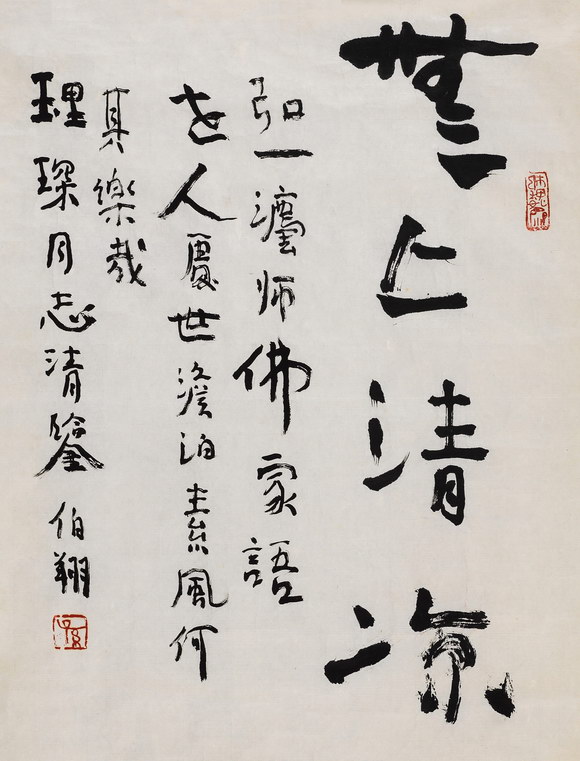 無上清凉
弘一灋師佛家語
老人處世澹泊素風何
其樂哉
理琛同志清鑒 伯翔